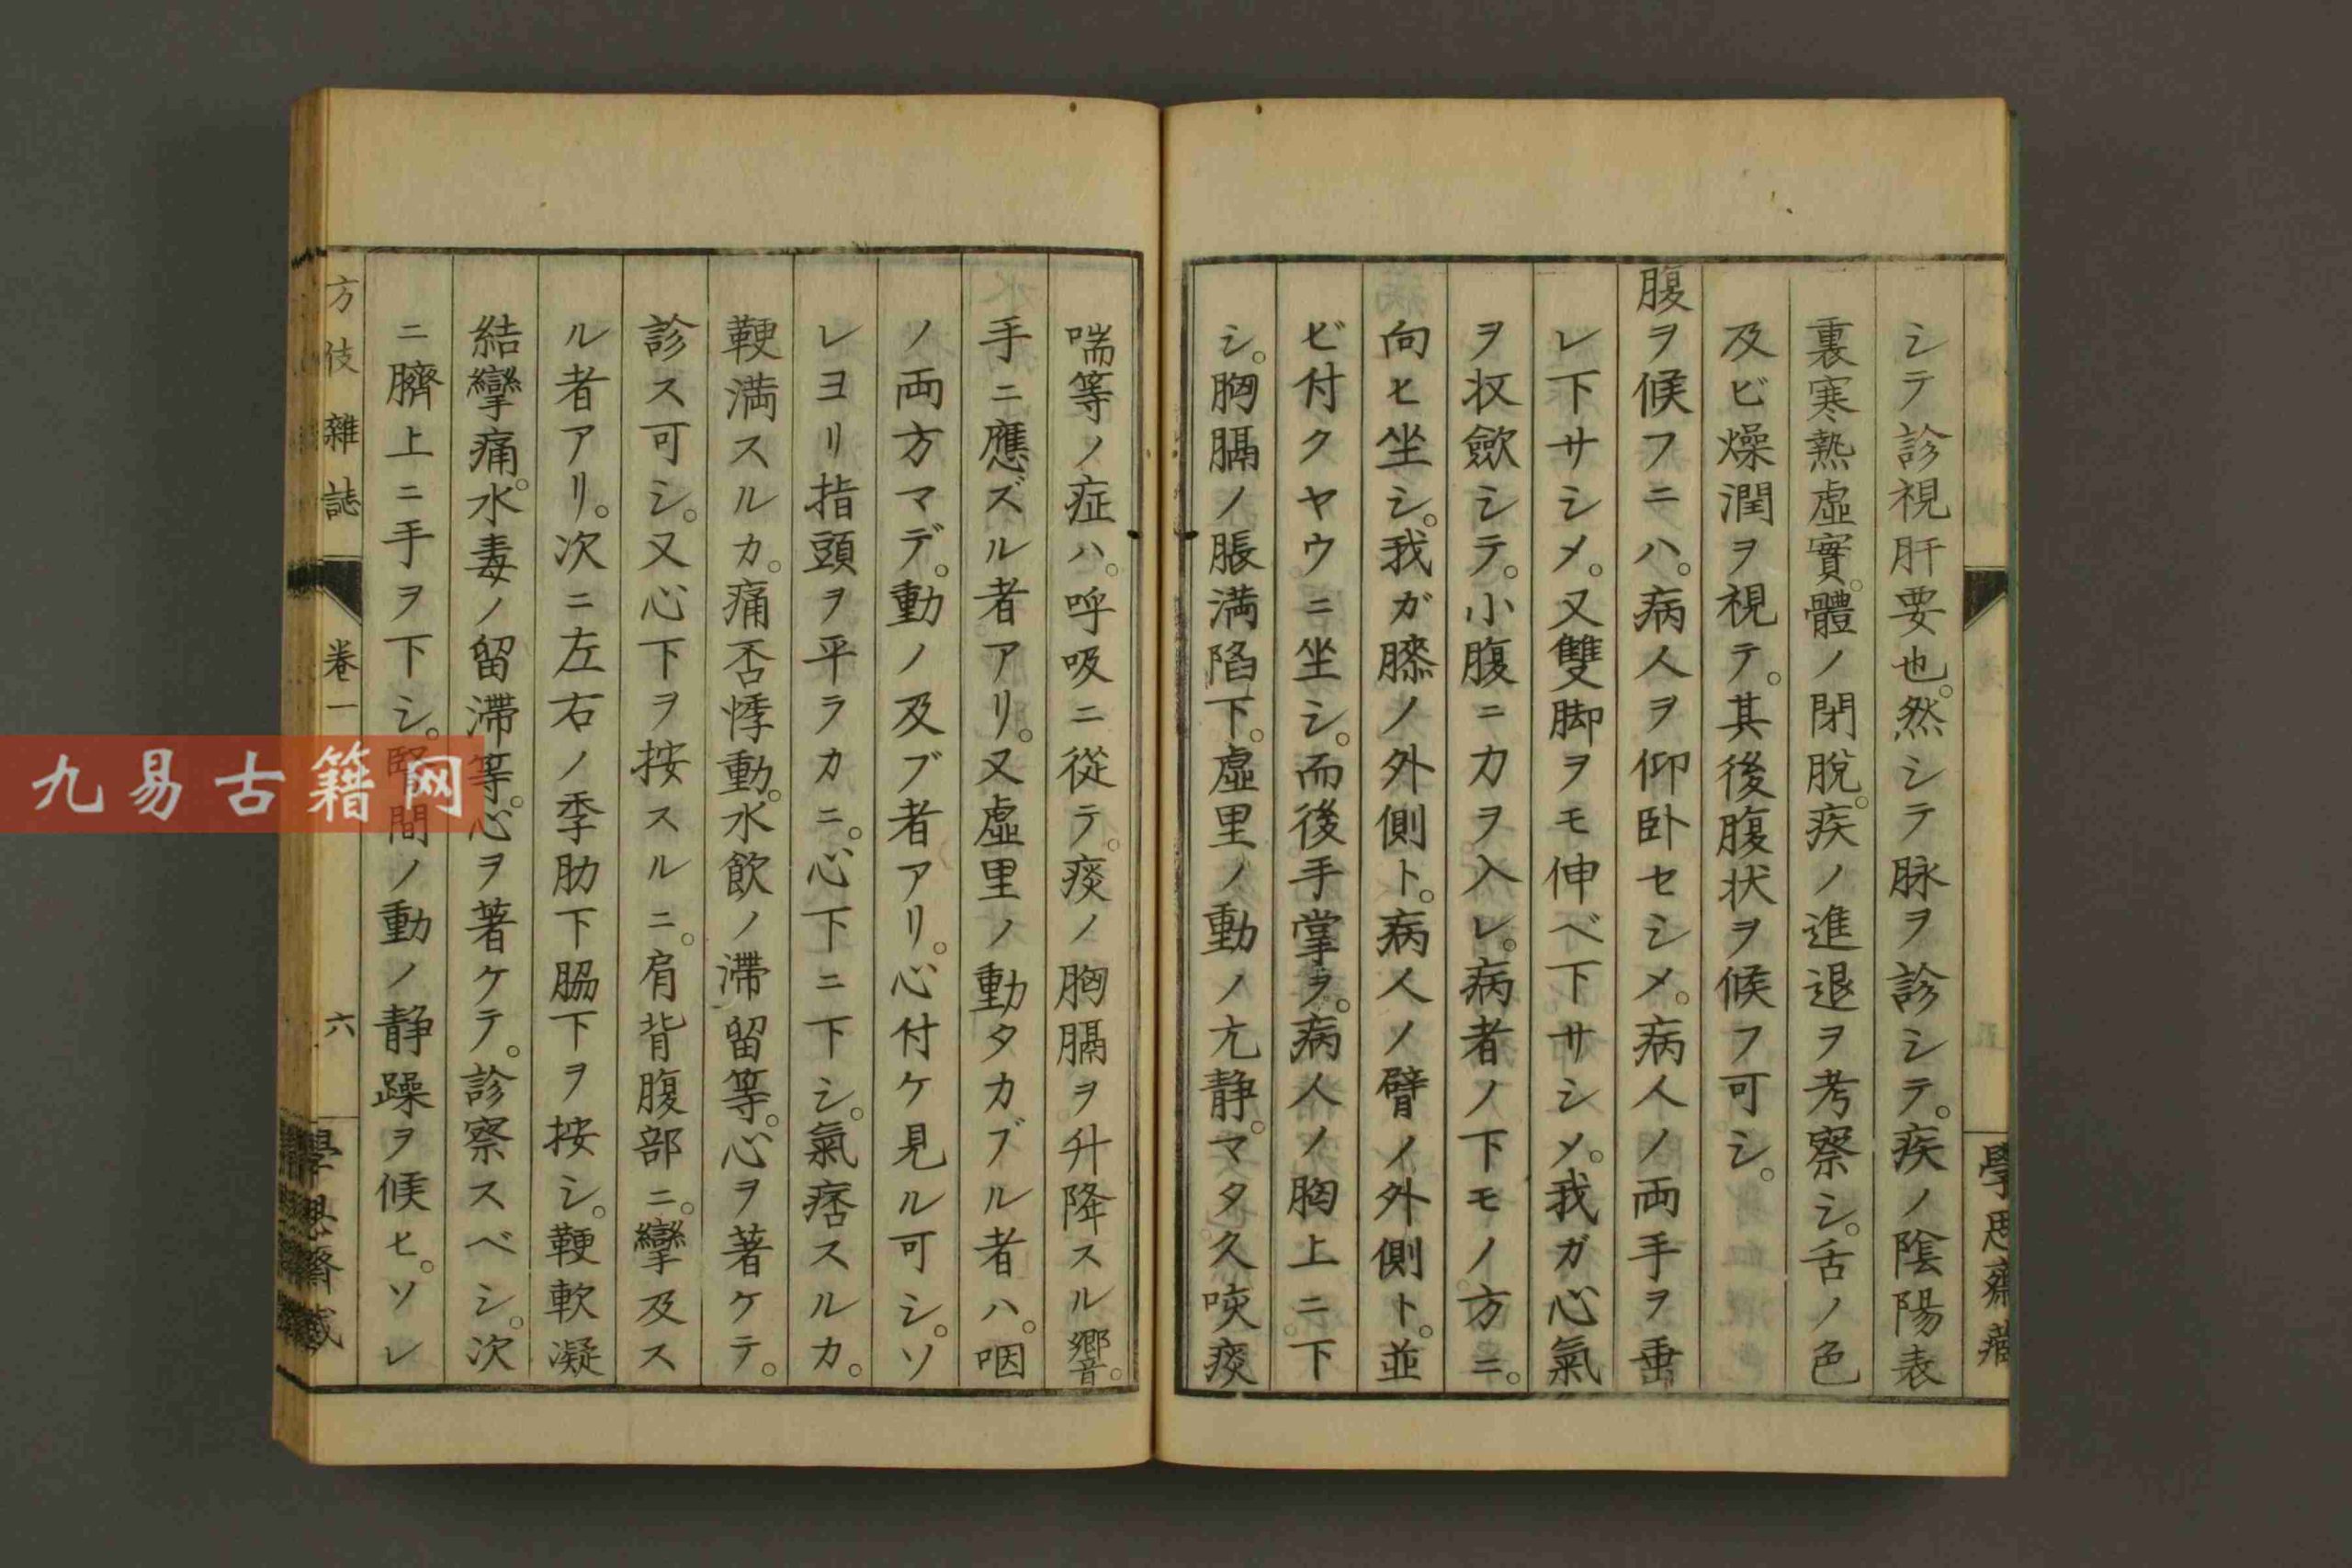 シテ診視肝要也。然シテ脉ヲ診シテ。疾ノ陰陽表
裏寒熱虛實。體ノ閉脫。疾ノ進退ヲ考察シ。舌ノ色
及ビ燥潤ヲ視テ。其後腹状ヲ候フ可シ。
腹ヲ候フニハ。病人ヲ仰卧セシメ。病人ノ両手ヲ垂
レ下サシメ。又雙脚ヲモ伸ベ下サシメ。我ガ心氣
ヲ収歛シテ。小腹ニカヲ入レ。病者ノ下モノ方ニ。
向ヒ坐シ。我ガ膝ノ外側ト。病人ノ臂ノ外側ト。並
ビ付クヤウニ坐シ。而後手掌ヲ。病人ノ胸上ニ下
シ。胸膈ノ脹満陷下。虛里ノ動ノ亢静。マタ久咳痰
喘等ノ症ハ。呼吸ニ從テ。痰ノ胸膈ヲ升降スル響。
手ニ應ズル者アリ。又虛里ノ動タカブル者ハ。咽
ノ両方マデ。動ノ及ブ者アリ。心付ケ見ル可シ。ソ
レヨリ指頭ヲ平ラカニ。心下ニ下シ。氣痞スルカ。
鞕満スルカ。痛否悸動。水飲ノ滯留等。心ヲ著ケテ。
診ス可シ。又心下ヲ按スルニ。肩背腹部ニ。攣及ス
ル者アリ。次ニ左右ノ季肋下脇下ヲ按シ。鞕軟凝
結攣痛。水毒ノ留滯等。心ヲ著ケテ。診察スベシ。次
ニ臍上ニ手ヲ下シ。腎間ノ動ノ静躁ヲ候ヒ。ソレ
方伎雜誌 卷一 六 學思齋藏
學思齋藏
九易古籍网